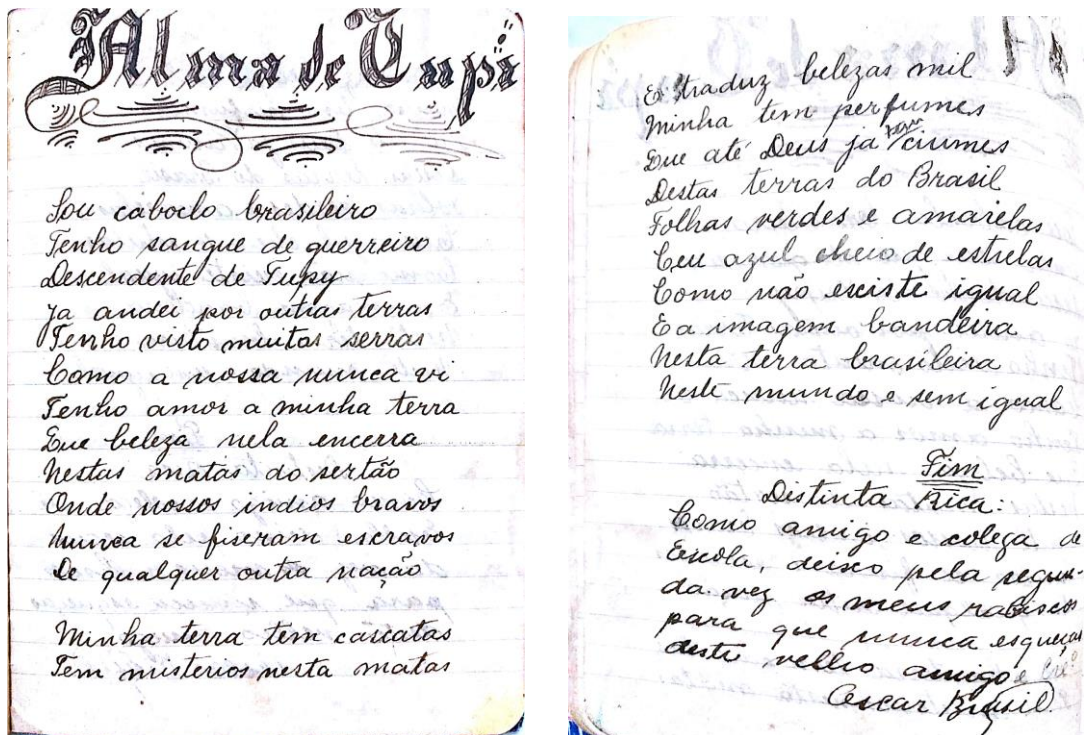 Alma de Tupi
Sou caboclo brasileiro
Tenho sangue de guerreiro
Descendente de Tupy
Ja andei por outras terras
Tenho visto muitas serras
Como a nossa nunca vi
Tenho amor a minha terra
Que beleza nela encerra
Nestas matas do sertão
Onde nossos indios bravos
Nunca se fiseram escravos
De qualquer outra nação
Minha terra tem cascatas
Tem misterios nesta matas
E traduz belezas mil
Minha tem perfumes
Que até Deus ja tem ciumes
Destas terras do Brasil
Folhas verdes e amarelas
Ceu azul cheio de estrelas
Como não existe igual
E a imagem bandeira
Nesta terra brasileira
Neste mundo e sem igual
Fim
Distinta Rica:
Como amigo e colega de
Escola, deixo pela segun-
da vez os meus rabiscos
para que nunca esqueças
deste velho amigo e
Oscar Brasil